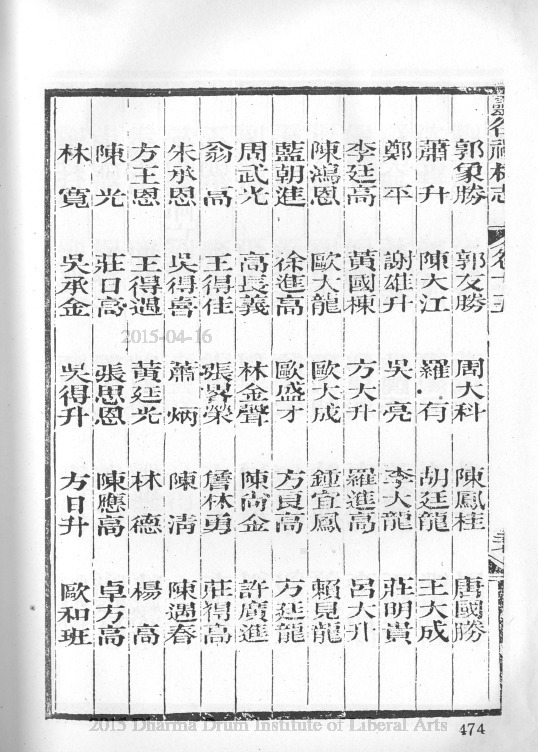 郭象勝 郭友勝 周大科 陳鳳桂 唐國勝
蕭升 陳大江 羅有 胡廷龍 王大成
鄭平 謝雄升 吳亮 李大龍 莊明貴
李廷高 黃國棟 方大升 羅進高 呂大升
陳鴻恩 歐大龍 歐大成 鍾宜鳳 賴見龍
藍朝進 徐進高 歐盛才 方良高 方廷龍
周武光 高長義 林金聲 陳尚金 許廣進
翁高 王得佳 張榮 詹林勇 莊得高
朱承恩 吳得喜 蕭炳 陳清 陳遇春
方王恩 王得過 黃廷光 林德 楊高
陳光 莊日高 張思恩 陳應高 卓方高
林寬 吳承金 吳得升 方日升 歐和班
2015-04-16
2015 Dharma Drum Institute of Liberal Arts
474